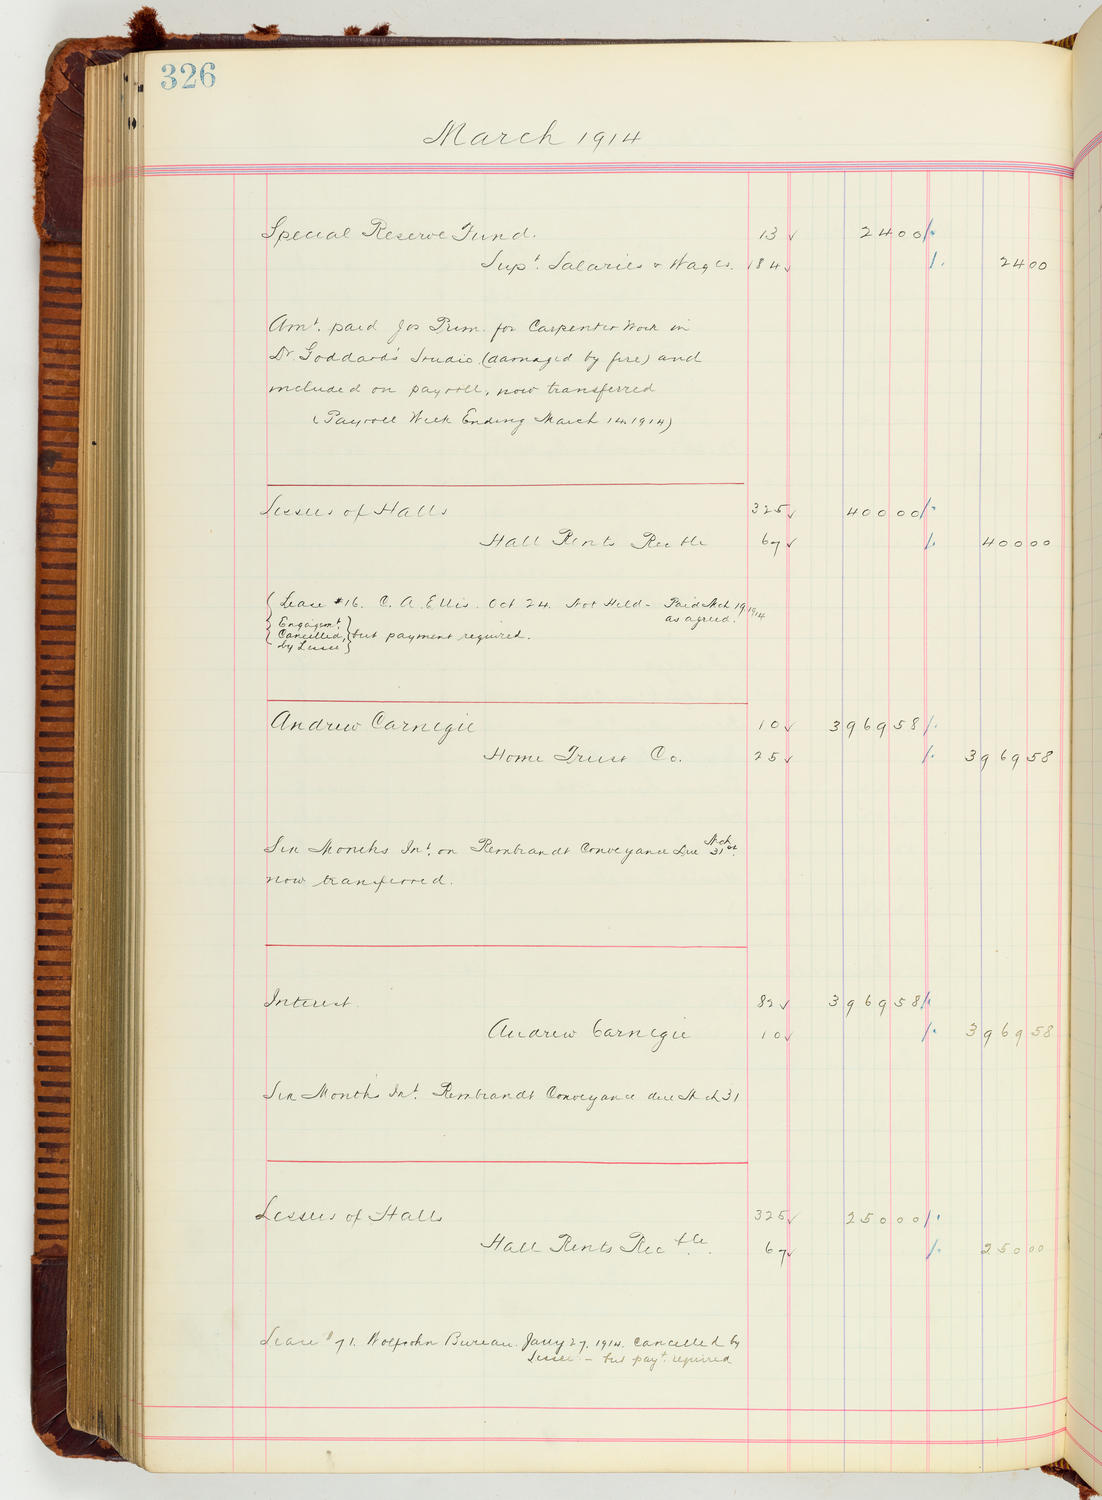 326
March 1914
Special Reserve Fund. 13 ✓ 2400
Supt. Salaries & Wages. 184 ✓ 2400
Amt. paid Jos Prim. for Carpenter Work in
Dr. Goddard's Studio (damaged by fire) and
included on payroll, now transferred
(Payroll Week Ending March 14. 1914)
Lessees of Halls 325 ✓ 40000
Hall Rents Rec ble 67 ✓ 40000
Lease #16. C. A. Ellis. Oct 24. Not Held - Paid Mch 19 1914
as agreed.
Engagemt.
Cancelled, but payment required.
by Lessee
Andrew Carnegie 10 ✓ 396958
Home Trust Co. 25 ✓ 396958
Six Months Int. on Rembrandt Conveyance Due Mch 31st.
now transferred.
Interest 82 ✓ 396958
Andrew Carnegie 10 ✓ 396958
Six Months Int. Rembrandt Conveyance due Mch 31
Lessees of Halls 325 ✓ 25000
Hall Rents Rec ble. 67 ✓ 25000
Lease # 71. Wolfsohn Bureau. Jany 27, 1914. Cancelled by
Lessee - but payt. required